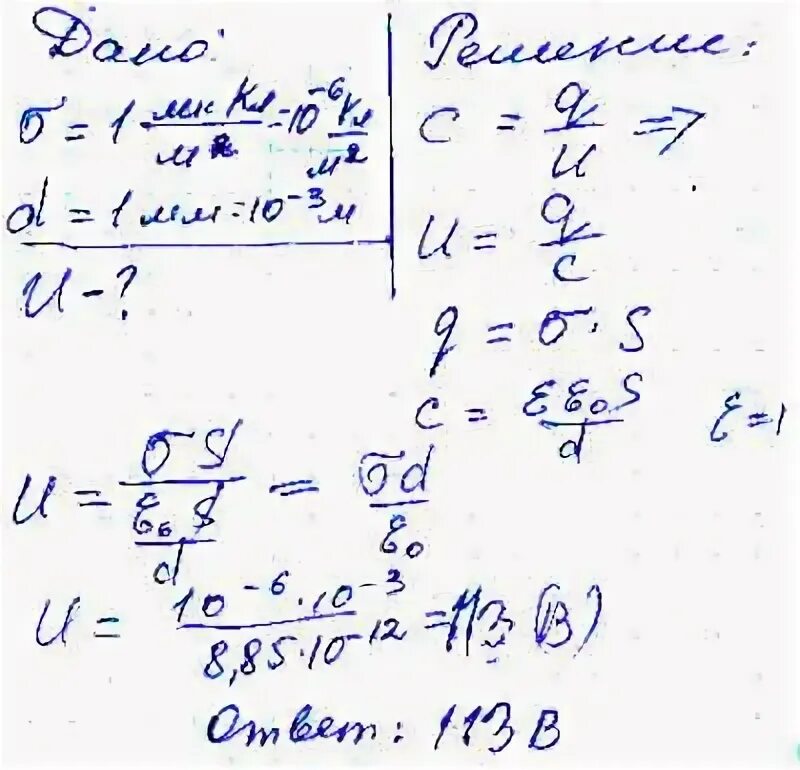 Дано:
σ = 1 мкКл/м² = 10⁻⁶ Кл/м²
d = 1 мм = 10⁻³ м
U - ?
Решение:
C = q/U =>
U = q/C
q = σ · S
C = εε₀S/d ε = 1
U = σS/(ε₀S/d) = σd/ε₀
U = 10⁻⁶ · 10⁻³/8,85 · 10⁻¹² = 113 (В)
Ответ: 113 В